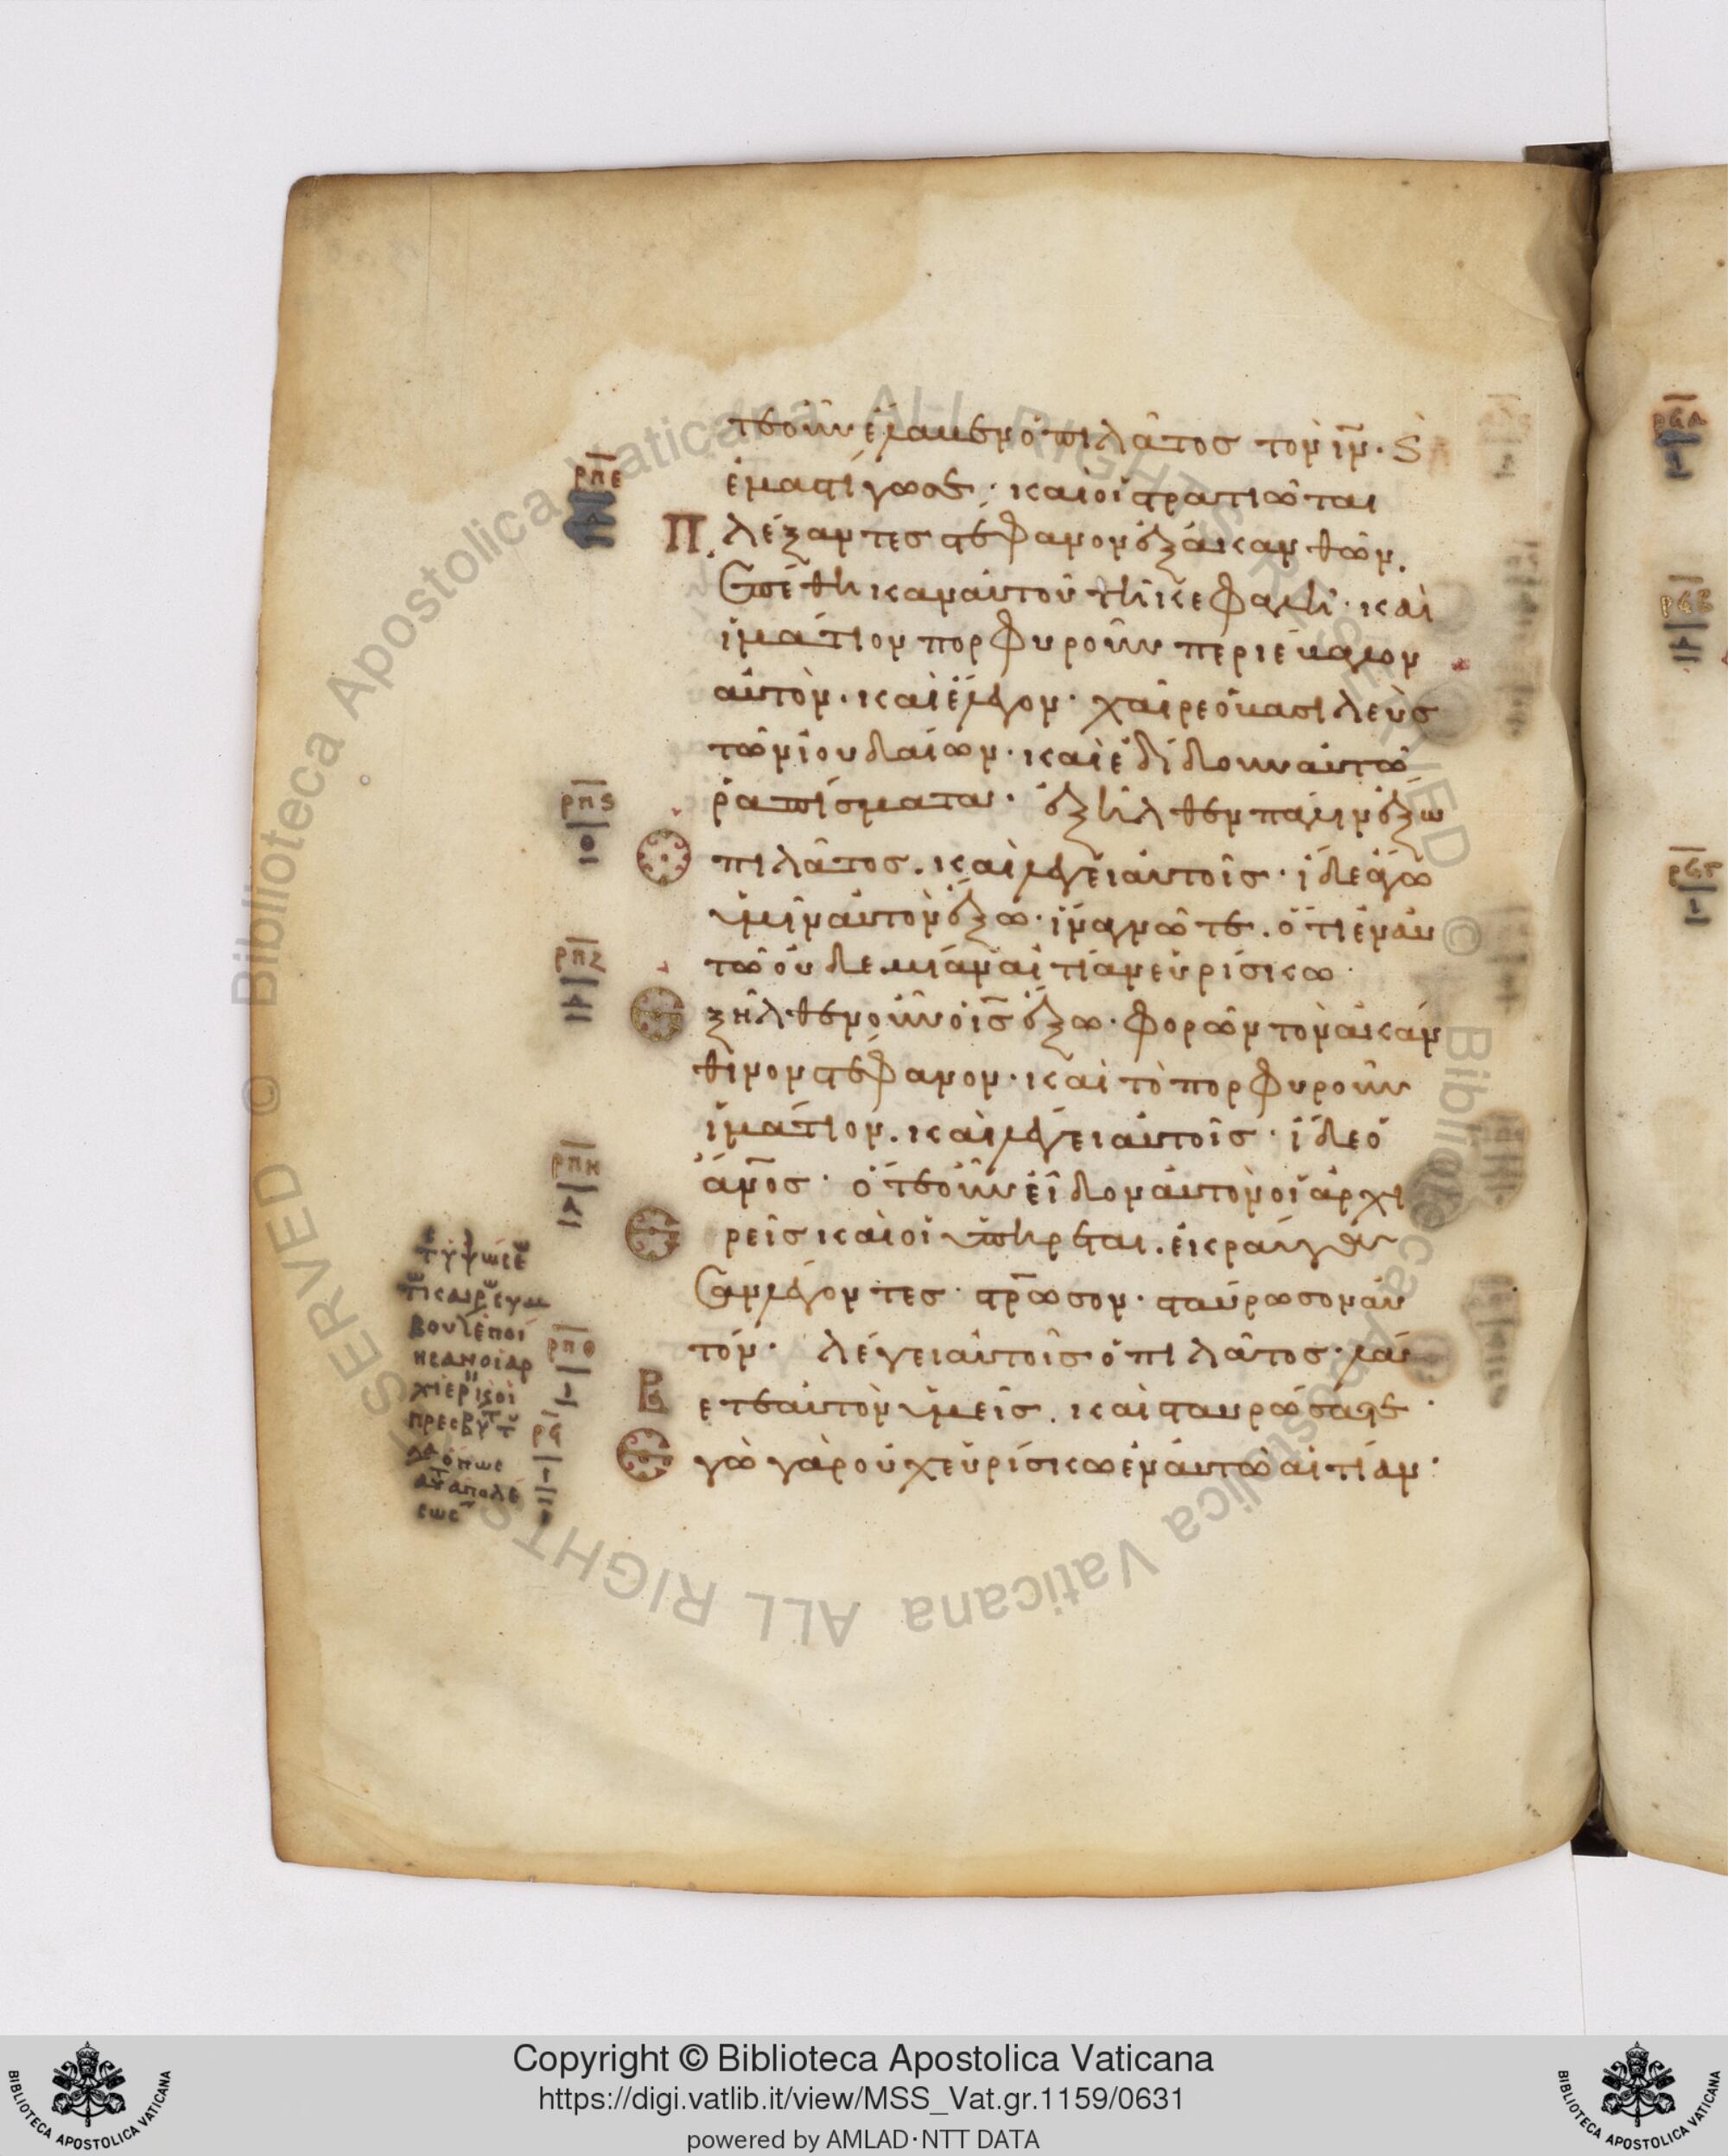 τε οὖν ἔλαβεν ὁ πιλᾶτος τὸν ιν̅· ϗ
ἐμαστίγωσε· καὶ οἱ στρατιῶται
Πλέξαντες στέφανον ἐξ ἀκανθῶν.
ἐπέθηκαν αὐτοῦ τῆ κεφαλῆ· καὶ
ἱμάτιον πορφυροῦν περιέβαλον
αὐτὸν· καὶ ἔλεγον· χαῖρε ὁ βασιλεὺς
τῶν ἰουδαίων· καὶ ἐδίδουν αὐτῶ
ῥαπίσματα· ἐξῆλθεν πάλιν ἔξω
ὁ πιλᾶτος. καὶ λέγει αὐτοῖς· ἴδε ἄγω
ὑμῖν αὐτὸν ἔξω· ἵνα γνῶτε. ὅτι ἐν αὐ
τῶ οὐδεμίαν αἰτίαν εὑρίσκω·
Ἐξῆλθεν οὖν ὁ ις̅ ἔξω· φορῶν τὸν ἀκάν
θινον στέφανον· καὶ τὸ πορφυροῦν
ἱμάτιον. καὶ λέγει αὐτοῖς· ἴδε ὁ
ἄνο̅ς· ὅτε οὖν εἶδον αὐτὸν οἱ ἀρχι
ερεῖς καὶ οἱ ὑπηρέται. ἐκραύγασ
αν λέγοντες· στρ̅ωσον· σταύρωσον αὐ
τόν· λέγει αὐτοῖς ὁ πιλᾶτος· λάβ
ετε αὐτὸν ὑμεῖς. καὶ σταυρώσατε·
Ἐγὼ γὰρ οὐχ εὑρίσκω ἐν αὐτῶ αἰτίαν·
ρπε
ρπς
ρπζ
ρπη
ρπθ
ρϟ
βουλ ἐποί
ησαν οἱ αρ
χιερ ϗ οἱ
πρεσβυτ
ὅπως
ρϟα
ρϟβ
ρϟγ
Copyright © Biblioteca Apostolica Vaticana
https://digi.vatlib.it/view/MSS_Vat.gr.1159/0631
powered by AMLAD·NTT DATA
BIBLIOTECA APOSTOLICA VATICANA
BIBLIOTECA APOSTOLICA VATICANA
© Biblioteca Apostolica Vaticana ALL RIGHTS RESERVED
© Biblioteca Apostolica Vaticana ALL RIGHTS RESERVED